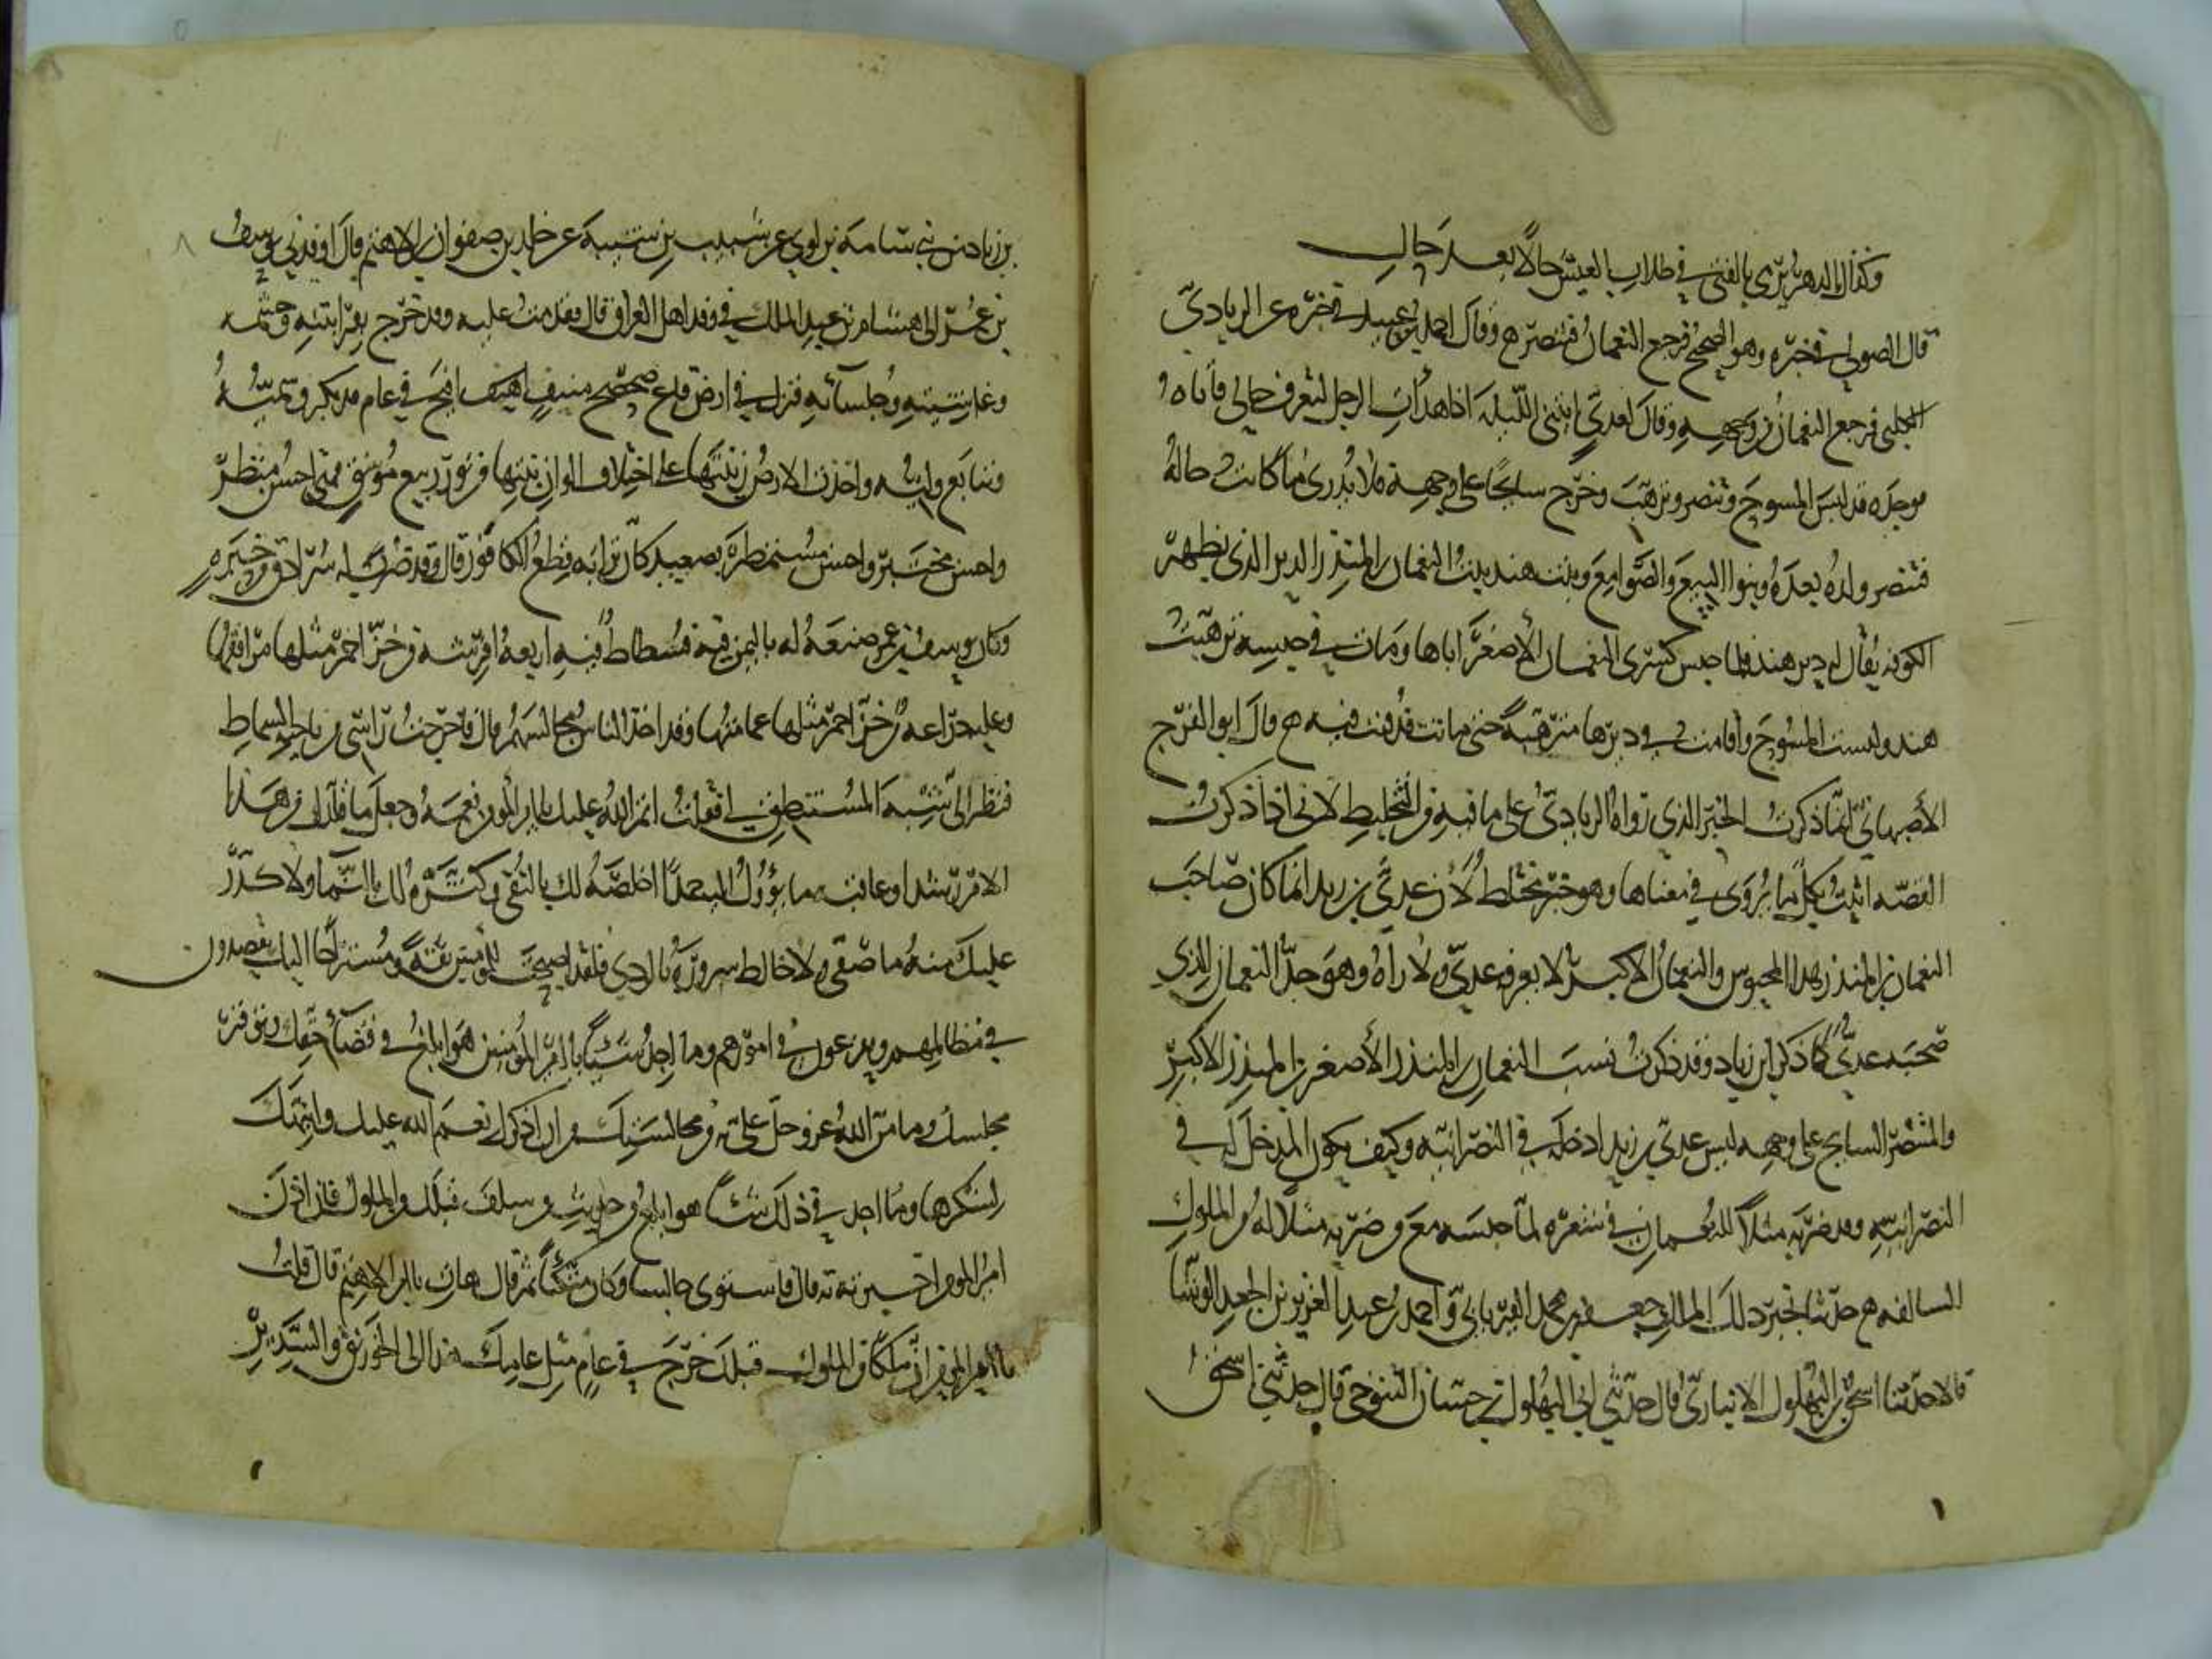 وكذاك الدهر يرمي بالفتى في طلاب العيش حالا بعد حال
قال الصولي في خبره وهو الصحيح فرجع النعمان فتنصر وقال احمد بن عبيد الله في خبره عن الزيادي
الكلبي فرجع النعمان من وجهه وقال لعدي ائتني الليلة اذا هدأت الرجل لتعرف حالي فأتاه
فوجده قد لبس المسوح وتنصر وترهب وخرج سائحا على وجهه فلا يدرى ما كانت حاله
فتنصر ولده بعده وبنوا البيع والصوامع وبنت هند بنت النعمان بن المنذر الدير الذي بظهر
الكوفه يقال له دير هند فلما حبس كسرى النعمان الأصغر اباها ومات في حبسه ترهبت
هند ولبست المسوح وأقامت في ديرها مترهبة حتى ماتت فدفنت فيه قال ابو الفرج
الأصبهاني انما ذكرت الخبر الذي رواه الزيادي على ما فيه من التخليط لاني اذا ذكرت
القصه اتيت بكل ما يروى في معناها وهو خبر مختلط لأن عدي بن زيد انما كان صاحب
النعمان بن المنذر هذا المحبوس والنعمان الاكبر لا يعرفه عدي ولا راه وهو جد النعمان الذي
صحبه عدي كما ذكر ابن زياد وقد ذكرت نسب النعمان بن المنذر الأصغر بن المنذر الاكبر
والمتنصر السايح على وجهه ليس عدي بن زيد ادخله في النصرانيه وكيف يكون المدخل له في
النصرانيه وقد ضربه مثلا للنعمان في شعره لما حبسه مع من ضربه مثلا له من الملوك
السالفه حدثنا بخبر ذلك الملك جعفر بن محمد الفريابي واحمد بن عبد العزيز بن الجعد الوشا
قالا حدثنا اسحق بن البهلول الانباري قال حدثني ابي البهلول بن حسان التنوخي قال حدثني اسحق
بن زياد من بني سامه بن لوي عن شبيب بن شيبه عن خالد بن صفوان بن الاهتم قال اوفدني يوسف
بن عمر الى هشام بن عبد الملك في وفد اهل العراق قال فقدمت عليه وقد خرج بقرابته وحشمه
وغاشيته وجلسآئه فنزل في ارض قاع صحصح منيف افيح في عام قد بكر وسميه
وتتابع وليه واخذت الارض زينتها على اختلاف الوان نبتها من نور ربيع مونق فهي احسن منظر
واحسن مختبر واحسن مستمطر بصعيد كان ترابه قطع الكافور قال وقد ضرب له سرادق من حبره
وكان يوسف بن عمر صنعه له باليمن فيه فسطاط فيه اربعة افرشه من خز احمر مثلها مرافقها
وعليه دراعه من خز احمر مثلها عمامتها وقد اخذ الناس مجالسهم قال فاخرجت راسي من ناحيه السماط
فنظر الى شبه المستنطق لي فقلت اتم الله عليك يا امير المومنين نعمه وجعل ما قلدك من هذا
الامر رشدا وعاقبه ما يؤول اليه حمدا اخلصه لك بالتقى وكثره لك بالنما ولا كدر
عليك منه ما صفى ولا خالط سروره بالردي فلقد اصبحت للمومنين ثقة ومستراحا اليك يقصدون
في مظالمهم ويفزعون في امورهم وما اجد شيئا يا امير المؤمنين هو ابلغ في قضآء حقك وتوقير
مجلسك وما من الله عز وجل علي به من مجالستك من ان اذكرك نعم الله عليك وانبهك
لشكرها وما اجد في ذلك شيئا هو ابلغ من حديث من سلف قبلك من الملوك فان اذن
امير المومنين اخبرته به قال فاستوى جالسا وكان متكئا ثم قال هات يا ابن الاهتم قال قلت
يا امير المومنين ان ملكا من الملوك قبلك خرج في عام مثل عامك هذا الى الخورنق والسدير